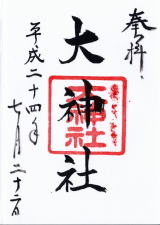 奉拝
大神社
平成二十四年
七月二十二日